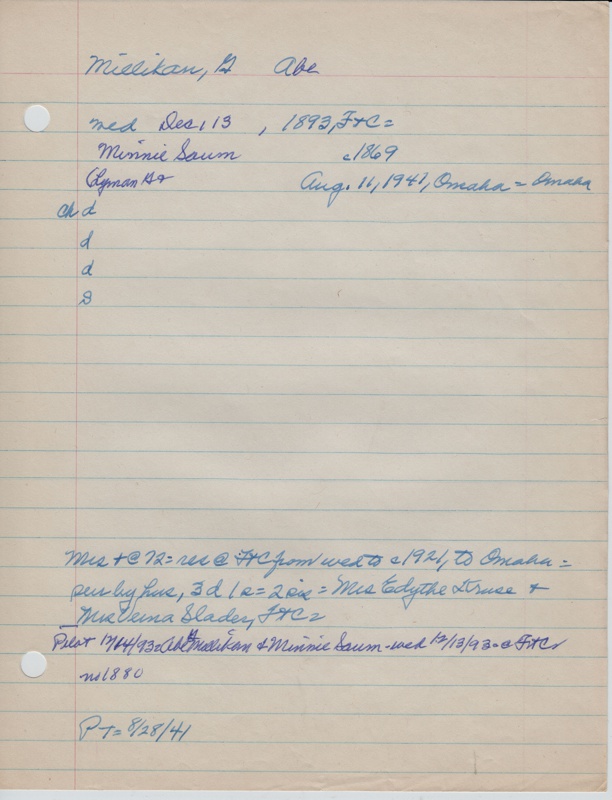 Millikan, G Abe
wed Dec, 13 , 1893, F+C=
Minnie Saum c1869
Lyman G+ Aug. 11, 1941, Omaha = Omaha
ch d
d
d
s
Mrs + @ 72 = res @ F+C from wed to c1921, to Omaha =
sur by hus, 3 d 1 s = 2 sis = Mrs Edythe Druse +
Mrs Verna Slader, F+C=
Pilot 12/14/93= Abe G Millikan + Minnie Saum - wed 12/13/93 - @ F+C
no 1880
PT= 8/28/41